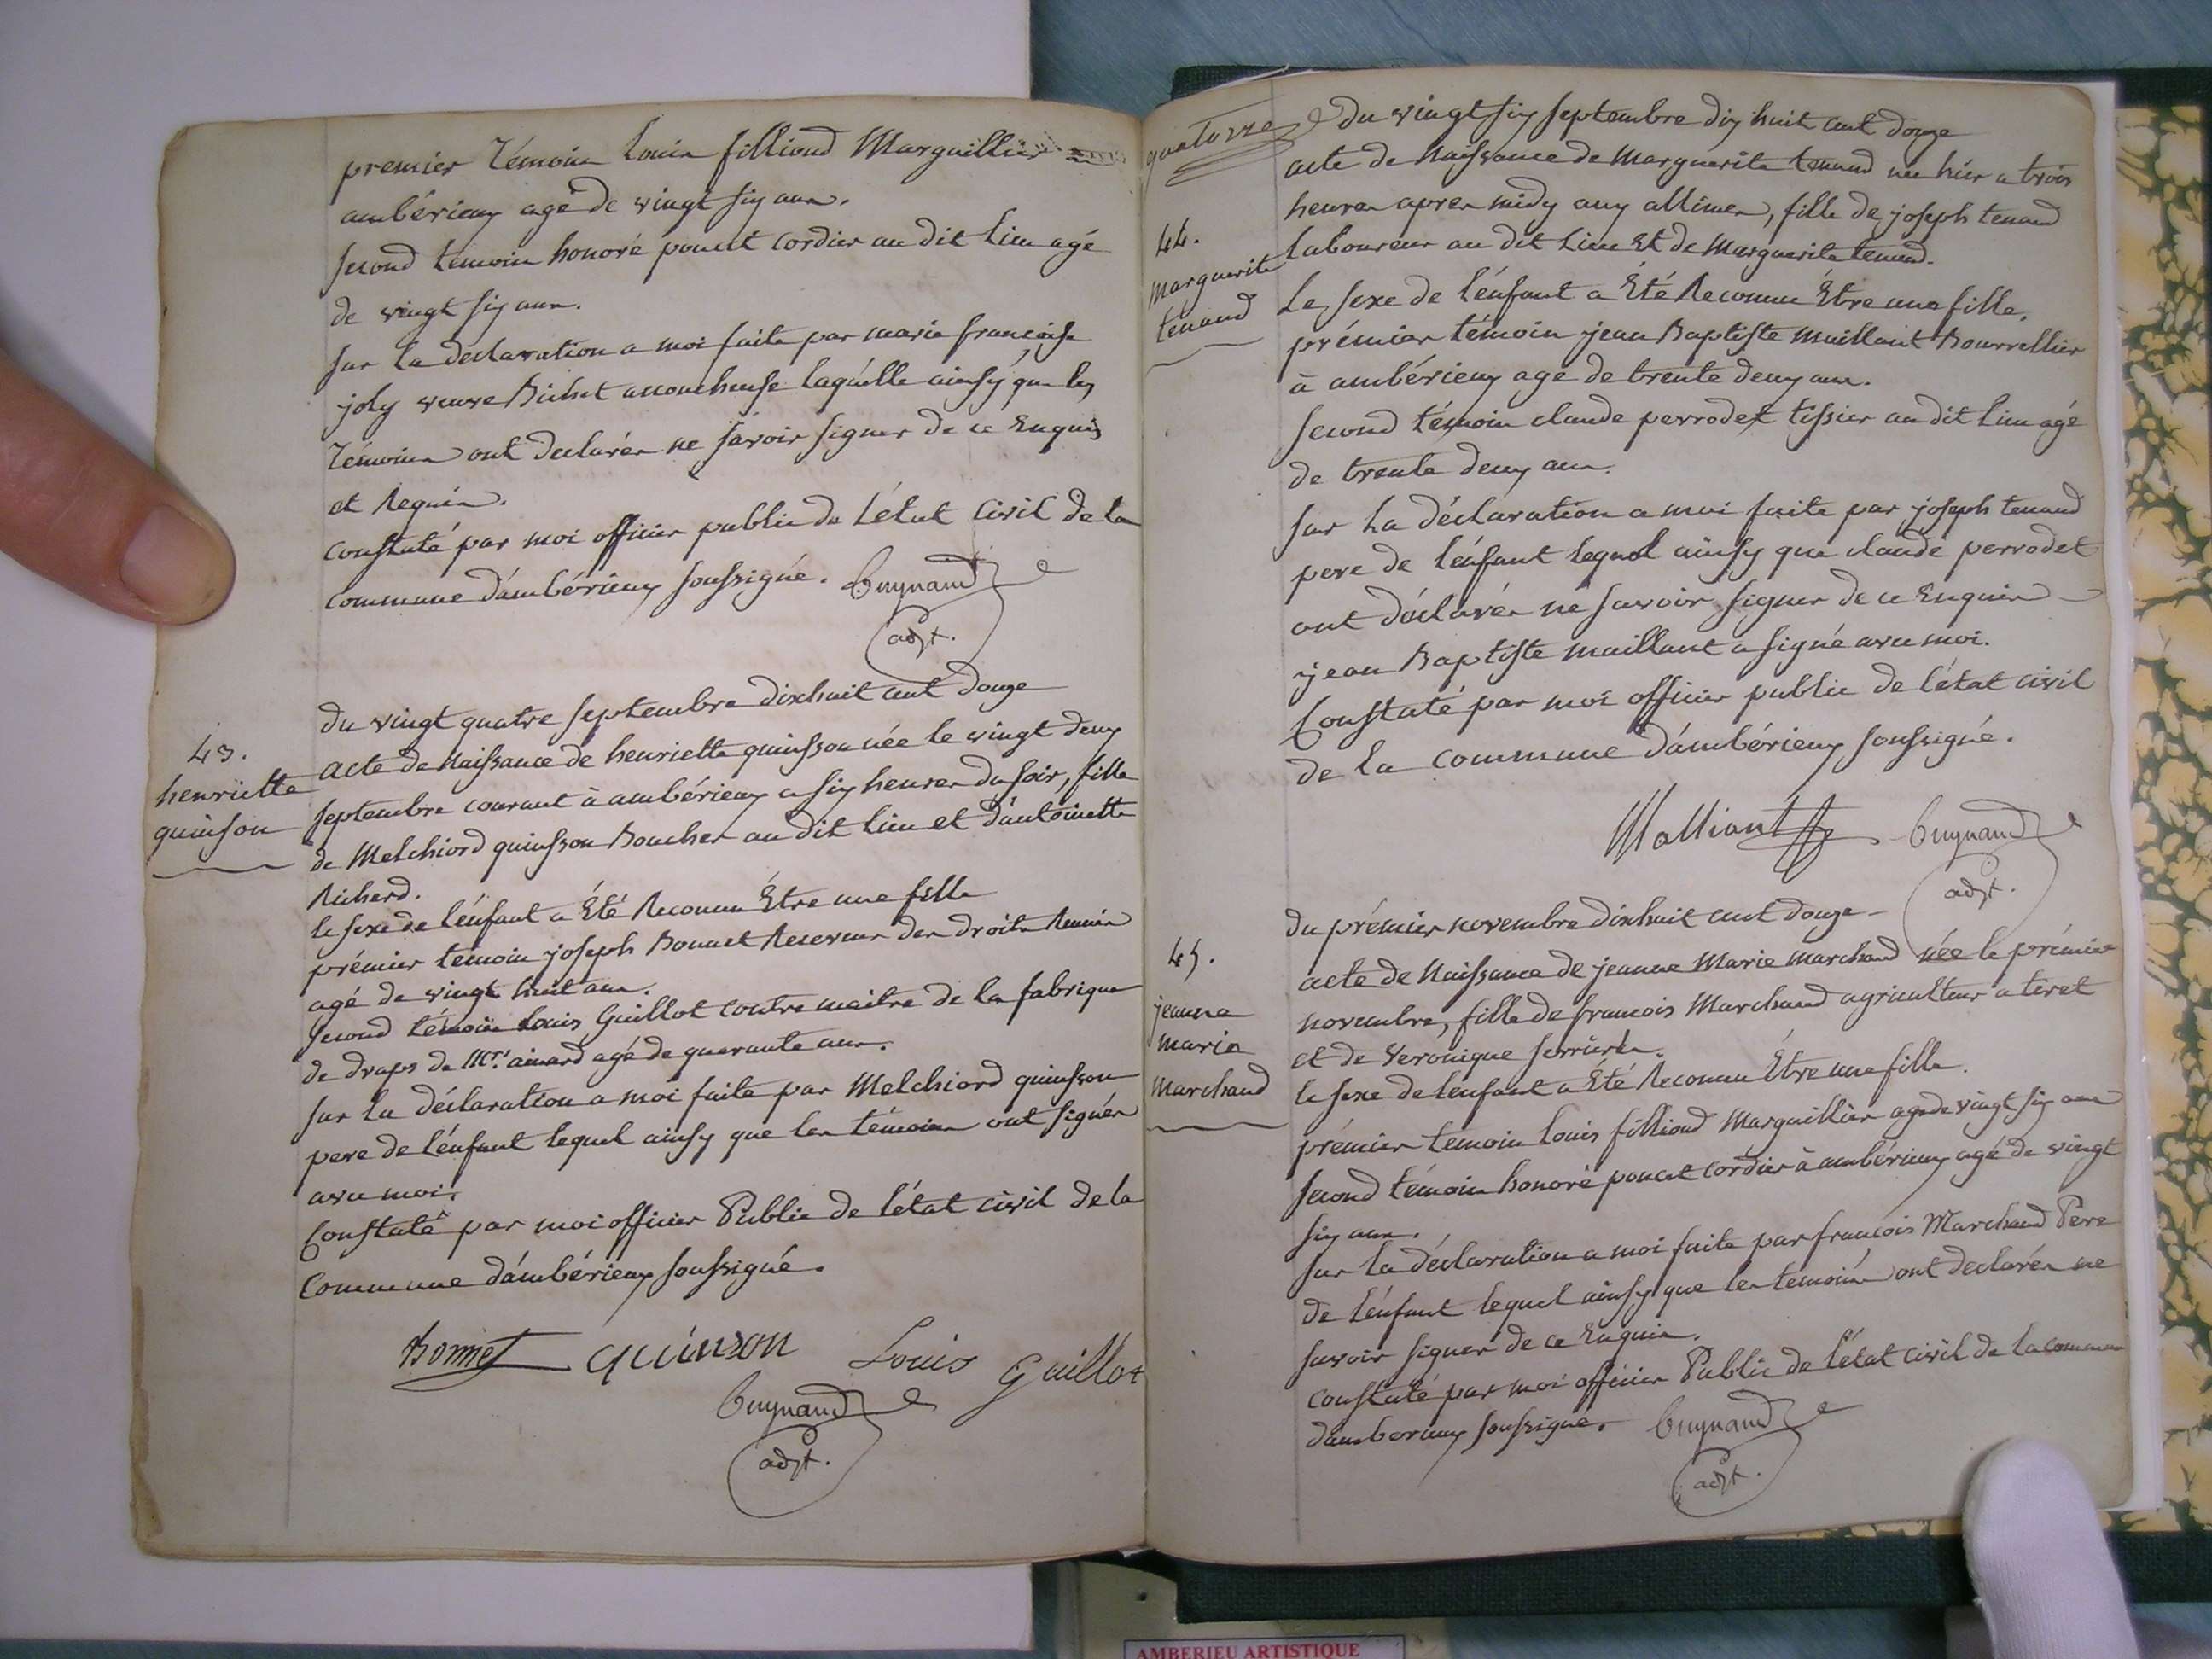 premier témoin Louis fillioud Marguillier
ambérieux agé de vingt six ans.
second témoin honoré poncet cordier au dit Lieu agé
de vingt six ans.
sur la déclaration a moi faite par marie françoise
joly veuve Bichet accoucheuse laquélle ainsy que les
témoins ont declarés ne sávoir signer de ce Enquis
et Requis.
constaté par moi officier public de L'état Civil de la
commune d'ambérieux soussigné. Guynand
adjt.
43.
henriette
quinson
du vingt quatre septembre dixhuit cent douze
acte de Naissance de henriette quinsson née le vingt deux
septembre courant à ambérieux a six heures du soir, fille
de Melchiord quinsson Boucher au dit Lieu et d'antoinette
Richerd.
le sexe de l'énfant a Été Reconnu Être une fille
prémier temoin joseph Bonnet Receveur des droits Reunis
agé de vingt huit ans.
second témoin Louis Guillot contre maitre de la fabrique
de draps de Mr. ainard agé de quarante ans.
sur la déclaration a moi faite par Melchiord quinsson
pere de l'énfant lequel ainsy que les témoins ont signés
avec moi.
Constaté par moi officier Public de l'état civil de la
Commune d'ambérieux soussigné.
Bonnet quinson Louis Guillot
Guynand
adjt.
quatorze
du vingt six septembre dix huit cent douze
44.
Marguerite
tenand
acte de Naissance de Marguerite tenand née hier a trois
heures apres midy aux allimes, fille de joseph tenand
Laboureur au dit Lieu Et de Marguerite tenand.
Le sexe de l'énfant a Été Reconnu Être une fille,
prémier témoin jean Baptiste Maillant Bourrellier
à ambérieux age de trente deux ans.
second témoin claude perrodet tissier au dit Lieu agé
de trente deux ans.
sur La déclaration a moi faite par joseph tenand
pere de l'énfant lequel ainsy que claude perrodet
ont déclarés né savoir signer de ce Enquis
jean Baptiste maillant a signé avec moi.
Constaté par moi officier public de l'état civil
de la commune d'ambérieux soussigné.
Malliant Guynand
adjt.
45.
jeanne
marie
marchand
du prémier novembre dixhuit cent douze
acte de Naissance de jeanne Marie marchand née le prémier
novembre, fille de francois Marchand agriculteur a tiret
et de Veronique
le sexe de lenfant a Été Reconnu Être une fille.
prémier temoin Louis filliod Marguillier age de vingt six ans
second témoin honoré poncet cordier à ambérieux agé de vingt
six ans.
sur la déclaration a moi faite par francois Marchand Pere
de l'énfant lequel ainsy que les temoins ont declarés ne
savoir signer de ce Enquis.
constaté par moi officier Public de l'état civil de la commune
damberieux soussigné. Guynand
adjt.
AMBERIEU ARTISTIQUE